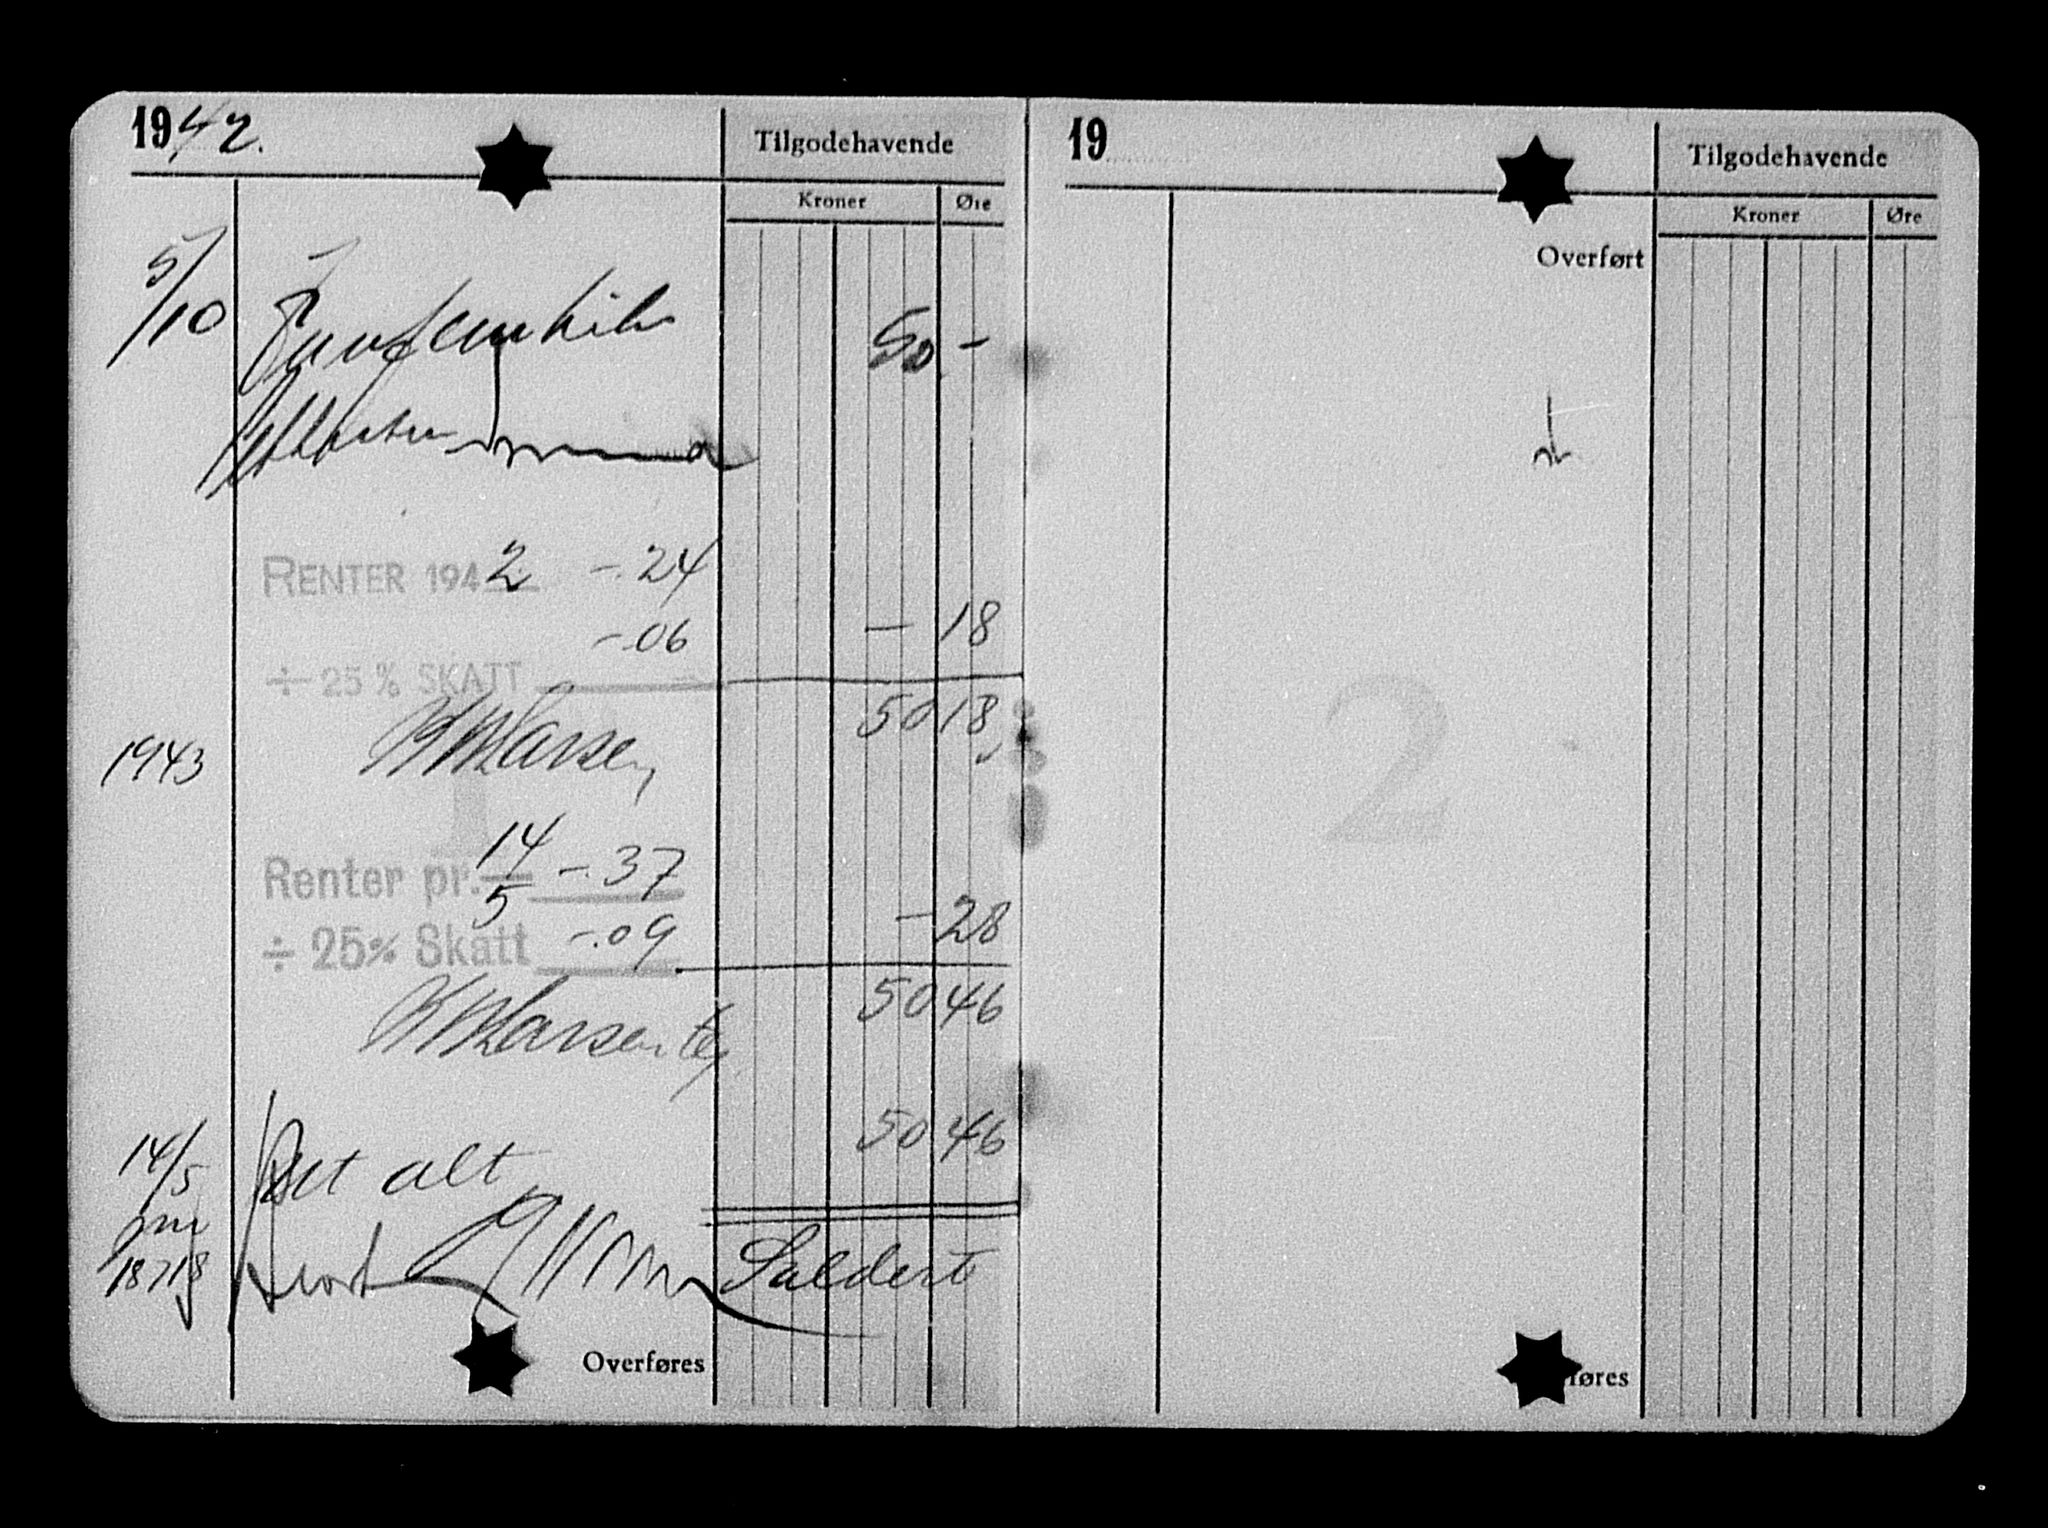 1942.
Tilgodehavende
Kroner Øre
5/10 50.-
RENTER 1942 -.24
-.06 - 18
÷ 25 % SKATT
50 18
Larsen
1943
1
Renter pr. 14/5 -.37
- 28
÷ 25% Skatt -.09
50 46
Larsen
50 46
14/5 alt
18718 Saldert
Overføres
19
Tilgodehavende
Kroner Øre
Overført
2
føres